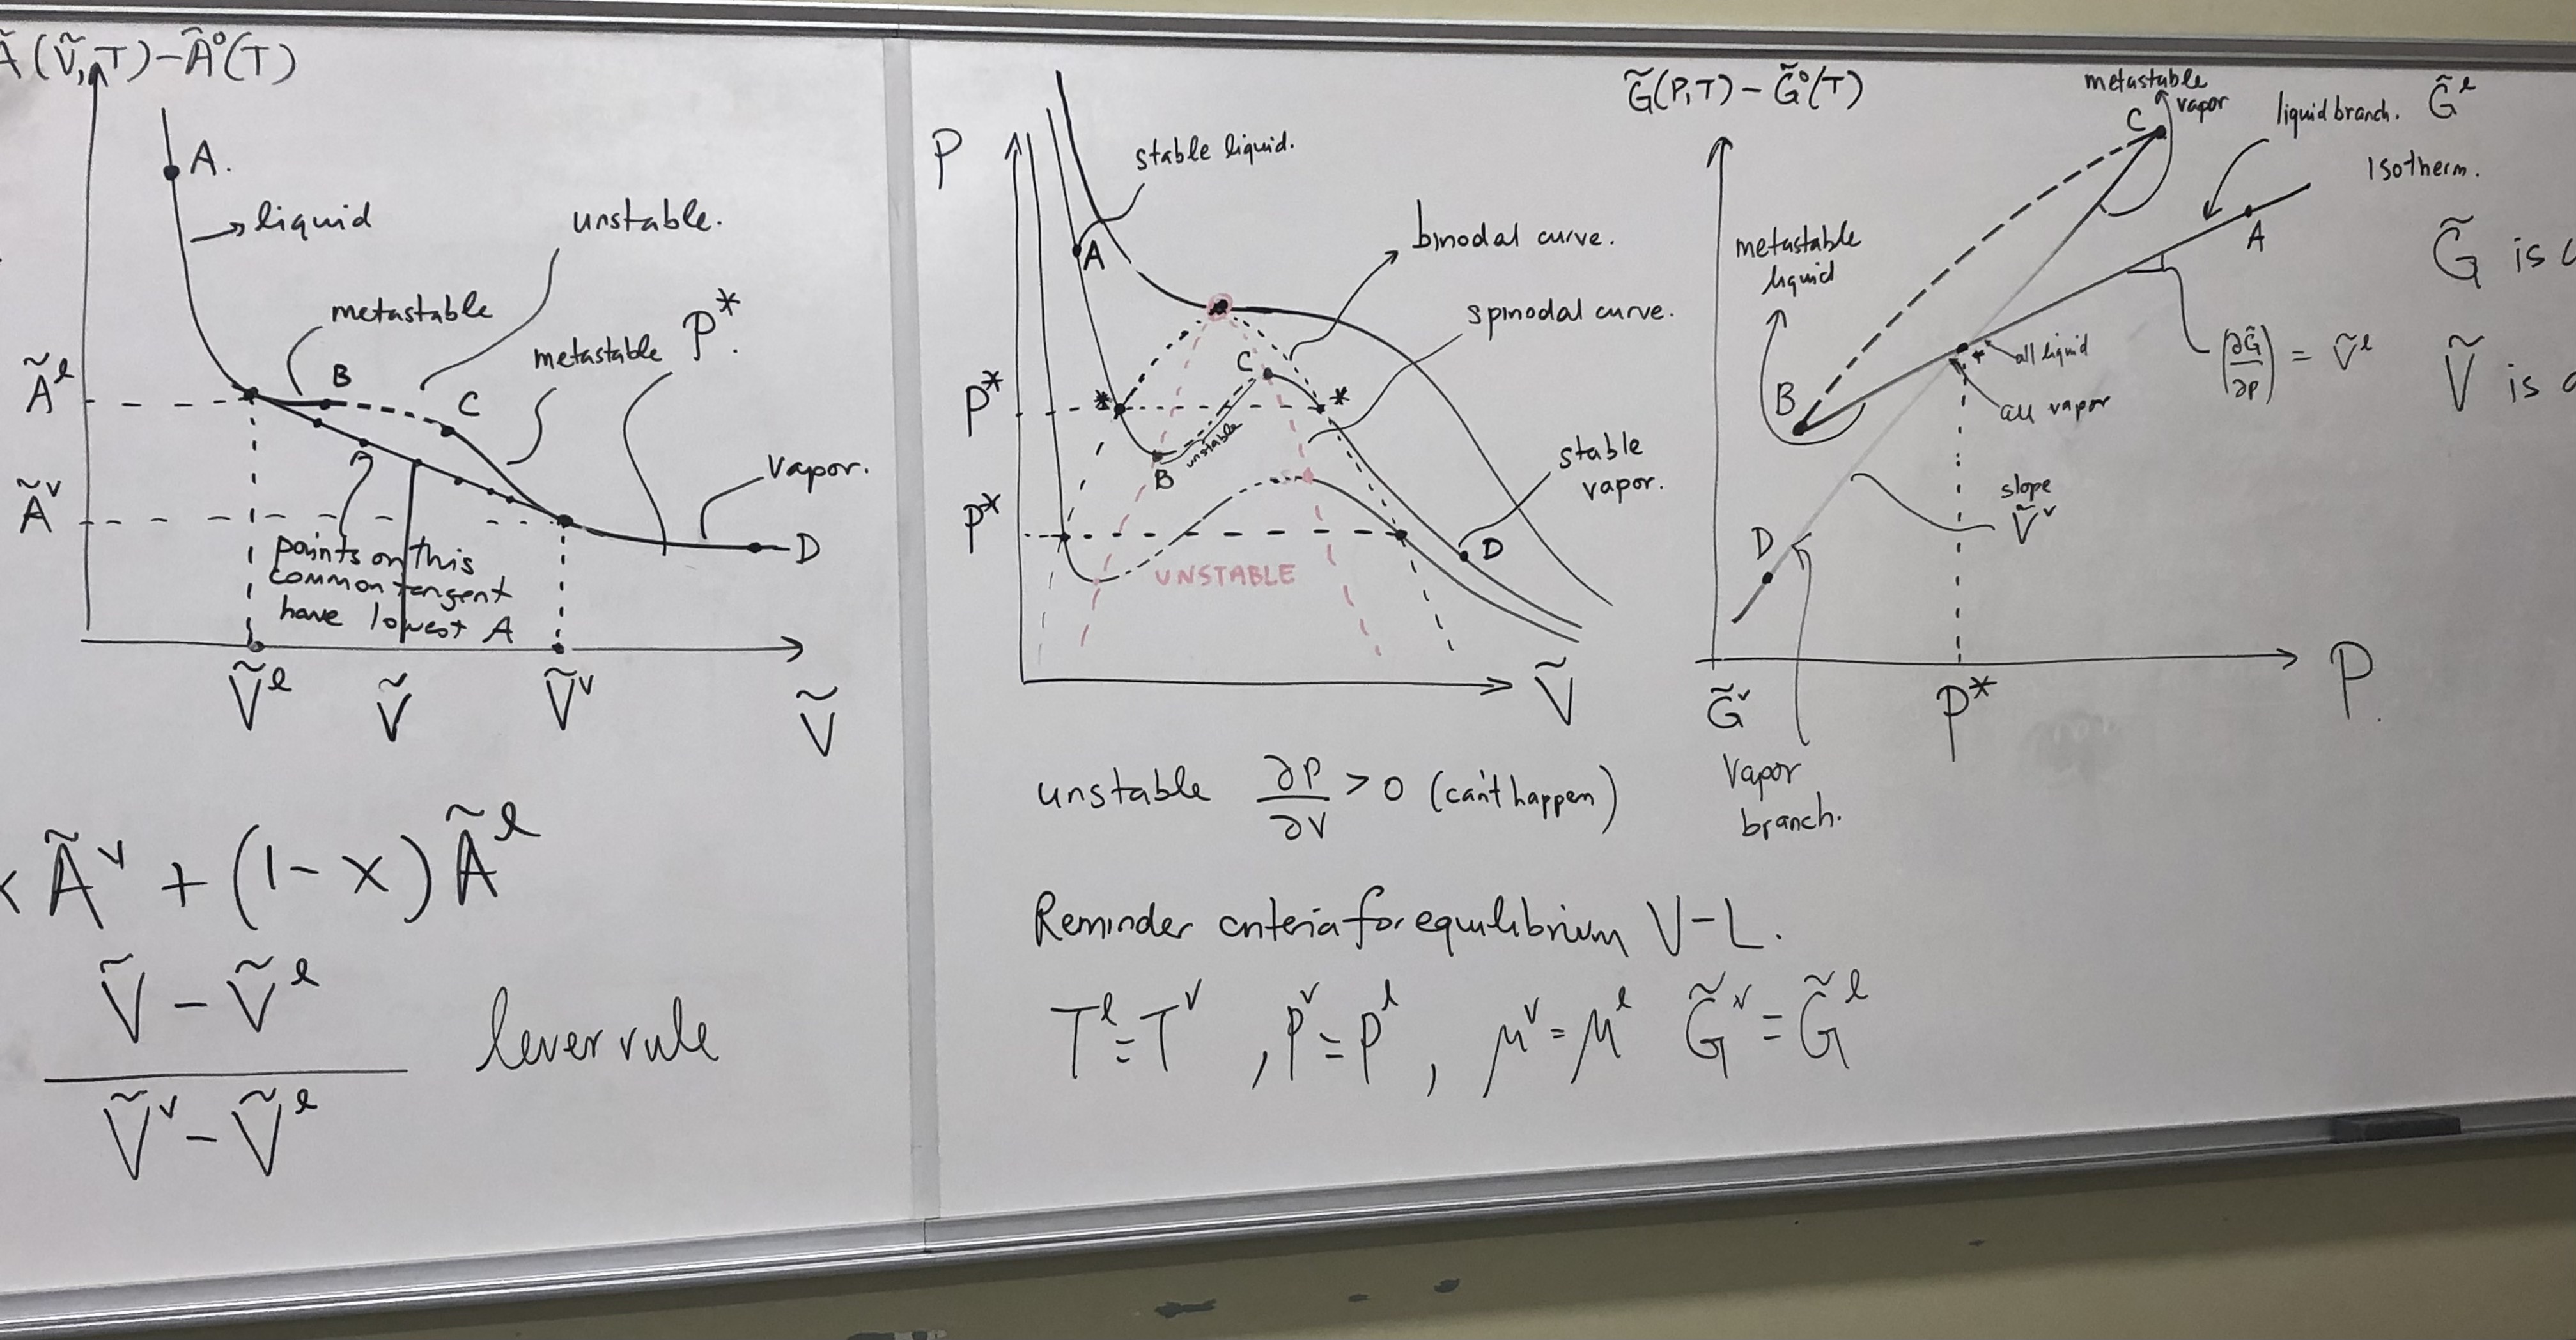 Ã(Ṽ,T)-Ã°(T)
A.
liquid
unstable.
metastable
P*.
metastable
B
C
Ãˡ
Ãᵛ
vapor.
D
points on this
common tangent
have lowest A
Ṽˡ
Ṽ
Ṽᵛ
Ṽ
Ãᵛ + (1-x)Ãˡ
Ṽ - Ṽˡ
Ṽᵛ - Ṽˡ
lever rule
P
stable liquid.
A
binodal curve.
spinodal curve.
C
P*
*
*
unstable
B
stable
vapor.
P*
D
UNSTABLE
Ṽ
unstable ∂P/∂V > 0 (can't happen)
Reminder criteria for equilibrium V-L.
Tˡ = Tᵛ, Pᵛ = Pˡ, μᵛ = μˡ G̃ᵛ = G̃ˡ
G̃(P,T) - G̃°(T)
metastable
vapor
C
liquid branch. G̃ˡ
Isotherm.
A
metastable
liquid
B
* all liquid
all vapor
(∂G̃/∂P) = Ṽˡ
slope
Ṽᵛ
D
G̃ᵛ
P*
P.
Vapor
branch.
G̃ is
Ṽ is